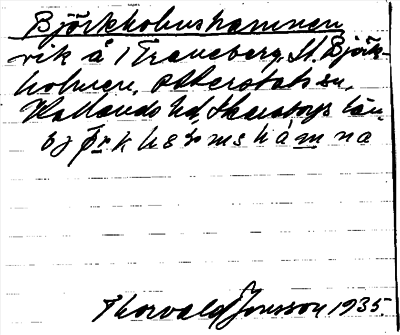 Björkholmshamnen
vik å 1 Traneberg, St. Björk-
holmen, Otterstads sn,
Kållands hd, Skaraborgs län.
bjørkhɵlmshàmna
Thorvald Jonsson 1935.